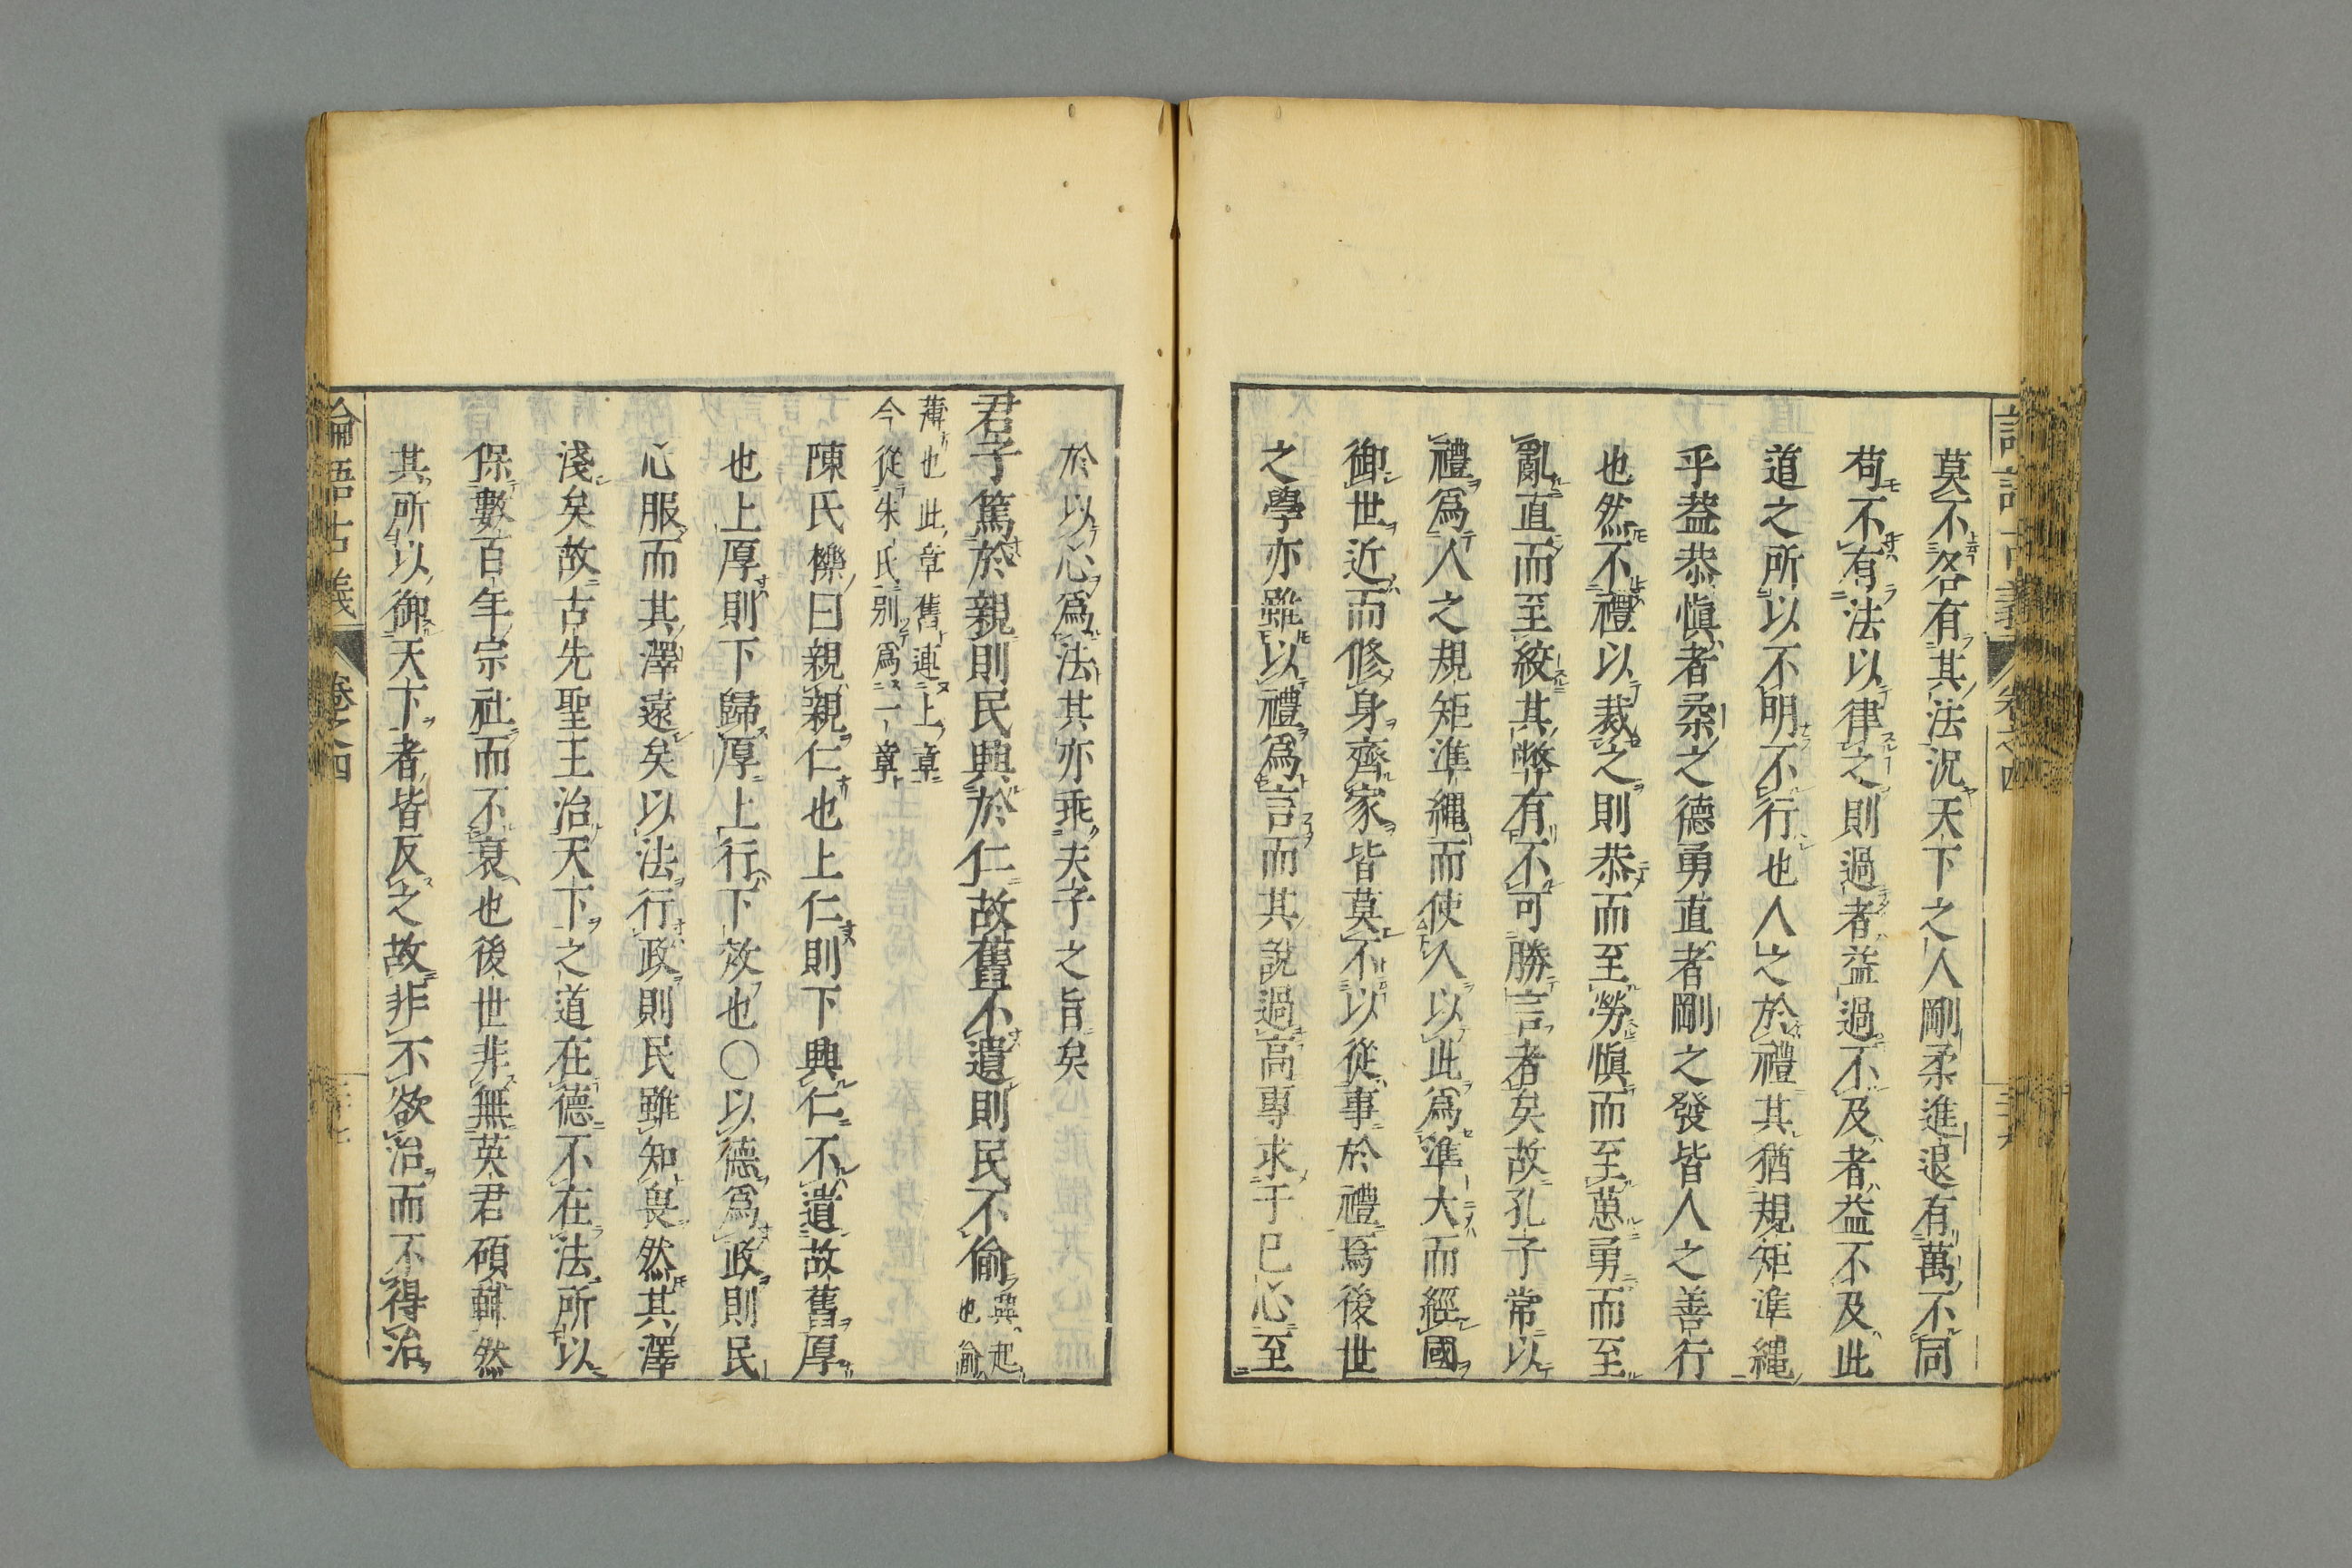 莫不各有其法況天下之人剛柔進退有萬不同
苟不有法以律之則過者益過不及者益不及此
道之所以不明不行也人之於禮其猶規矩準繩
乎葢恭愼者柔之德勇直者剛之發皆人之善行
也然不禮以裁之則恭而至勞愼而至葸勇而至
亂直而至絞其弊有不可勝言者矣故孔子常以
禮爲人之規矩準繩而使人以此爲準大而經國
御世近而修身齊家皆莫不以從事於禮焉後世
之學亦雖以禮爲言而其說過高專求于己心至
於以心爲法其亦乖夫子之旨矣
君子篤於親則民興於仁故舊不遺則民不偷 興起也偷
薄也此章舊連上章
今從朱氏別爲一章
陳氏櫟曰親親仁也上仁則下興仁不遺故舊厚
也上厚則下歸厚上行下效也○以德爲政則民
心服而其澤遠矣以法行政則民雖知畏然其澤
淺矣故古先聖王治天下之道在德不在法所以
保數百年宗社而不衰也後世非無英君碩輔然
其所以御天下者皆反之故非不欲治而不得治
論語古義 卷之四